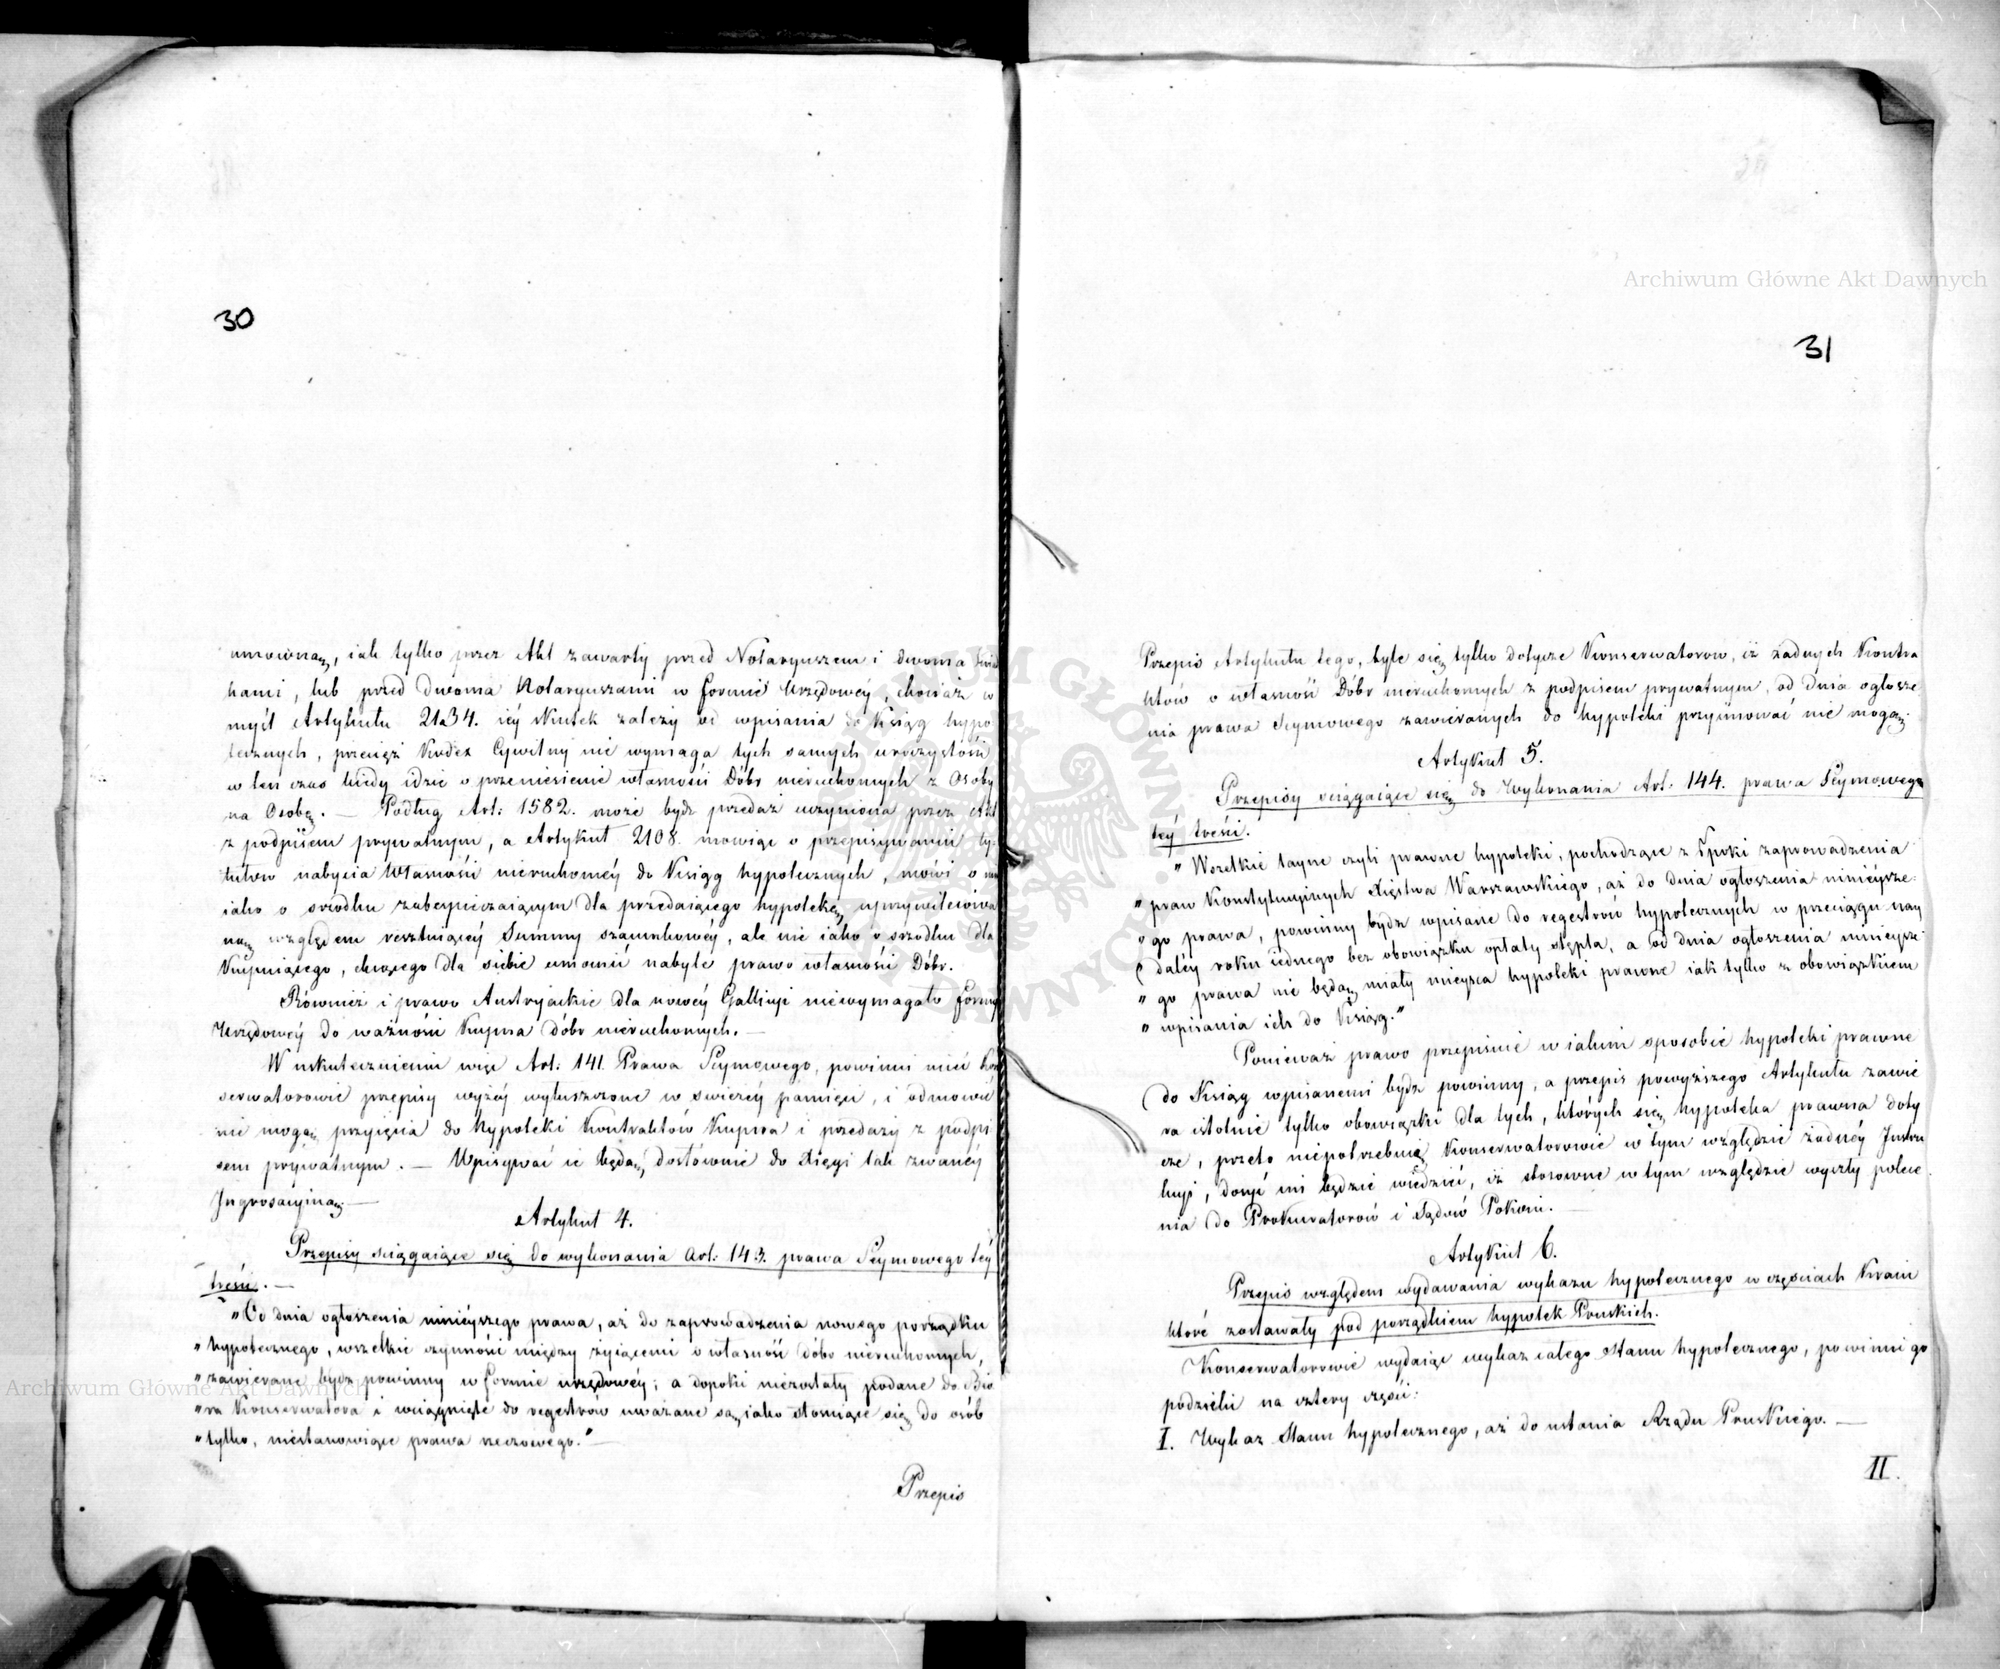 30
umowną, iak tylko przez Akt zawarty przed Notaryuszem i dwoma świad
kami, lub przed dwoma Notaryuszami w formie Urzędowéy, chociaż w
myśl Artykułu 2134. iéy skutek zależy od wpisania do Ksiąg hypo
tecznych, przecięż Kodex Cywilny nie wymaga tych samych uroczystości
w ten czas kiedy idzie o przeniesienie własności Dóbr nieruchomych z Osoby
na Osobę. — Podług Art: 1582. może bydz przedaż uczyniona przez Akt
z podpisem prywatnym, a Artykuł 2108. mowiąc o przepisywaniu ty-
tułów nabycia Własności nieruchoméy do Ksiąg hypotecznych, mówi o
iako o srzodku zabezpieczaiącym dla przedaiącego hypotekę uprzywileiowa
ną względem resztuiącéy Summy szacunkowéy, ale nie iako o srzodku dla
Kupuiącego, chcącego dla siebie umocnić nabyte prawo własności Dóbr.
Również i prawo Austryackie dla nowéy Gallicyi niewymagało formy
Urzędowéy do ważności Kupna dóbr nieruchomych. —
W uskutecznieniu więc Art: 141. Prawa Seymowego, powinni mieć Kon
serwatorowie przepisy wyżéy wyłuszczone w swieżéy pamięci, i odmowić
nie mogą przyięcia do hypoteki Kontraktów Kupna i przedaży z podpi
sem prywatnym. — Wpisywać ie będą dosłownie do Xięgi tak zwanéy
Ingrossacyiną. —
Artykuł 4.
Przepisy sciągaiące się do wykonania Art: 143. prawa Seymowego téy
treści. —
"Od dnia ogłoszenia ninieyszego prawa, aż do zaprowadzenia nowego porządku
"hypotecznego, wszelkie czynności między żyiącemi o własność dóbr nieruchomych,
"zawierane bydz powinny w formie urzędowéy; a dopoki niezostały podane do Bió
"ra Konserwatora i wciągnięte do regestrów uważane są iako stosuiące się do osób
"tylko, niestanowiące prawa rzeczowego." —
Przepis
31
Przepis Artykułu tego, tyle się tylko dotycze Konserwatorow, iż żadnych Kontra
któw o własność Dóbr nieruchomych z podpisem prywatnym, od dnia ogłosze
nia prawa Seymowego zawieranych do hypoteki przyimować nie mogą.
Artykuł 5.
Przepisy sciągaiące się do Wykonania Art: 144. prawa Seymowego
téy treści.
"Wszelkie tayne czyli prawne hypoteki, pochodzące z Epoki zaprowadzenia
"praw Konstytucyinych Xięstwa Warszawskiego, aż do dnia ogłoszenia ninieysze-
"go prawa, powinny bydz wpisane do regestrów hypotecznych w przeciągu nay
"daléy roku iednego bez obowiązku opłaty stępla, a od dnia ogłoszenia ninieysze
"go prawa nie będą miały mieysca hypoteki prawne iak tylko z obowiązkiem
"wpisania ich do Ksiąg."
Ponieważ prawo przepisuie w iakim sposobie hypoteki prawne
do Ksiąg wpisanemi bydz powinny, a przepis powyższego Artykułu zawie
ra istotnie tylko obowiązki dla tych, których się hypoteka prawna doty
cze, przeto niepotrzebuią Konserwatorowie w tym względzie żadnéy Instru
kcyi, dosyć im będzie wiedzieć, iż stosowne w tym względzie wyszły polece
nia do Prokuratorów i Sądów Pokoiu. —
Artykuł 6.
Przepis względem wydawania wykazu hypotecznego w częściach Kraiu
które zostawały pod porządkiem hypotek Pruskich.
Konserwatorowie wydaiąc wykaz całego stanu hypotecznego, powinni go
podzielić na cztery części:
I. Wykaz Stanu hypotecznego, aż do ustania Rządu Pruskiego. —
II.
Archiwum Główne Akt Dawnych
Archiwum Główne Akt Dawnych
ARCHIWUM GŁÓWNE AKT DAWNYCH